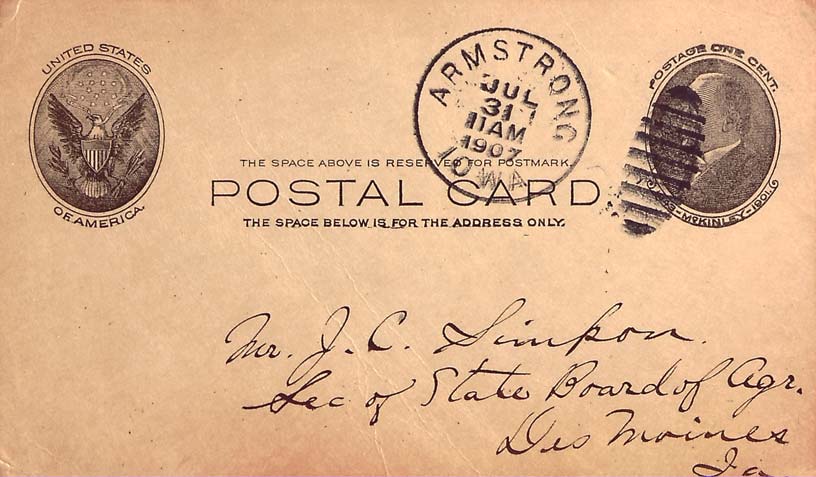 UNITED STATES
OF AMERICA.
ARMSTRONG
JUL
31
11 AM
1907
IOWA
POSTAGE ONE CENT.
McKINLEY-1901.
THE SPACE ABOVE IS RESERVED FOR POSTMARK.
POSTAL CARD
THE SPACE BELOW IS FOR THE ADDRESS ONLY.
Mr. J. C. Simpson.
Sec of State Board of Agr.
Des Moines
Ia